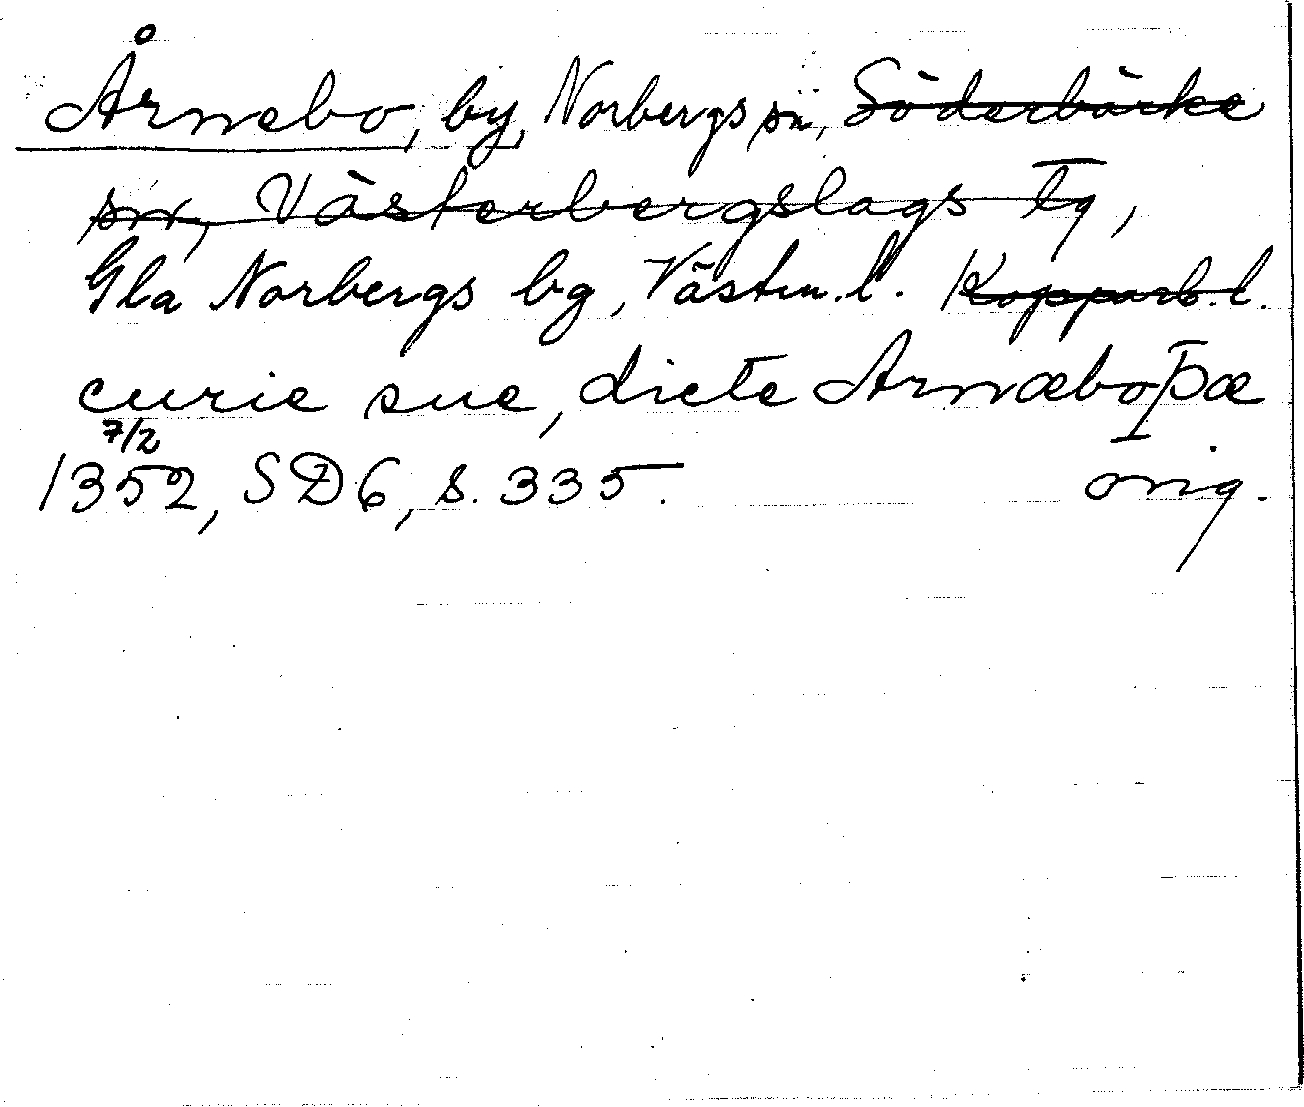 Årnebo, by, Norbergs sn, Söderbärke
sn, Västerbergslags tg,
Gla Norbergs bg, Västm. l. Kopparb. l.
curie sue, dicte Arnæboþæ
7/2
1352, SD 6, s. 335. orig.